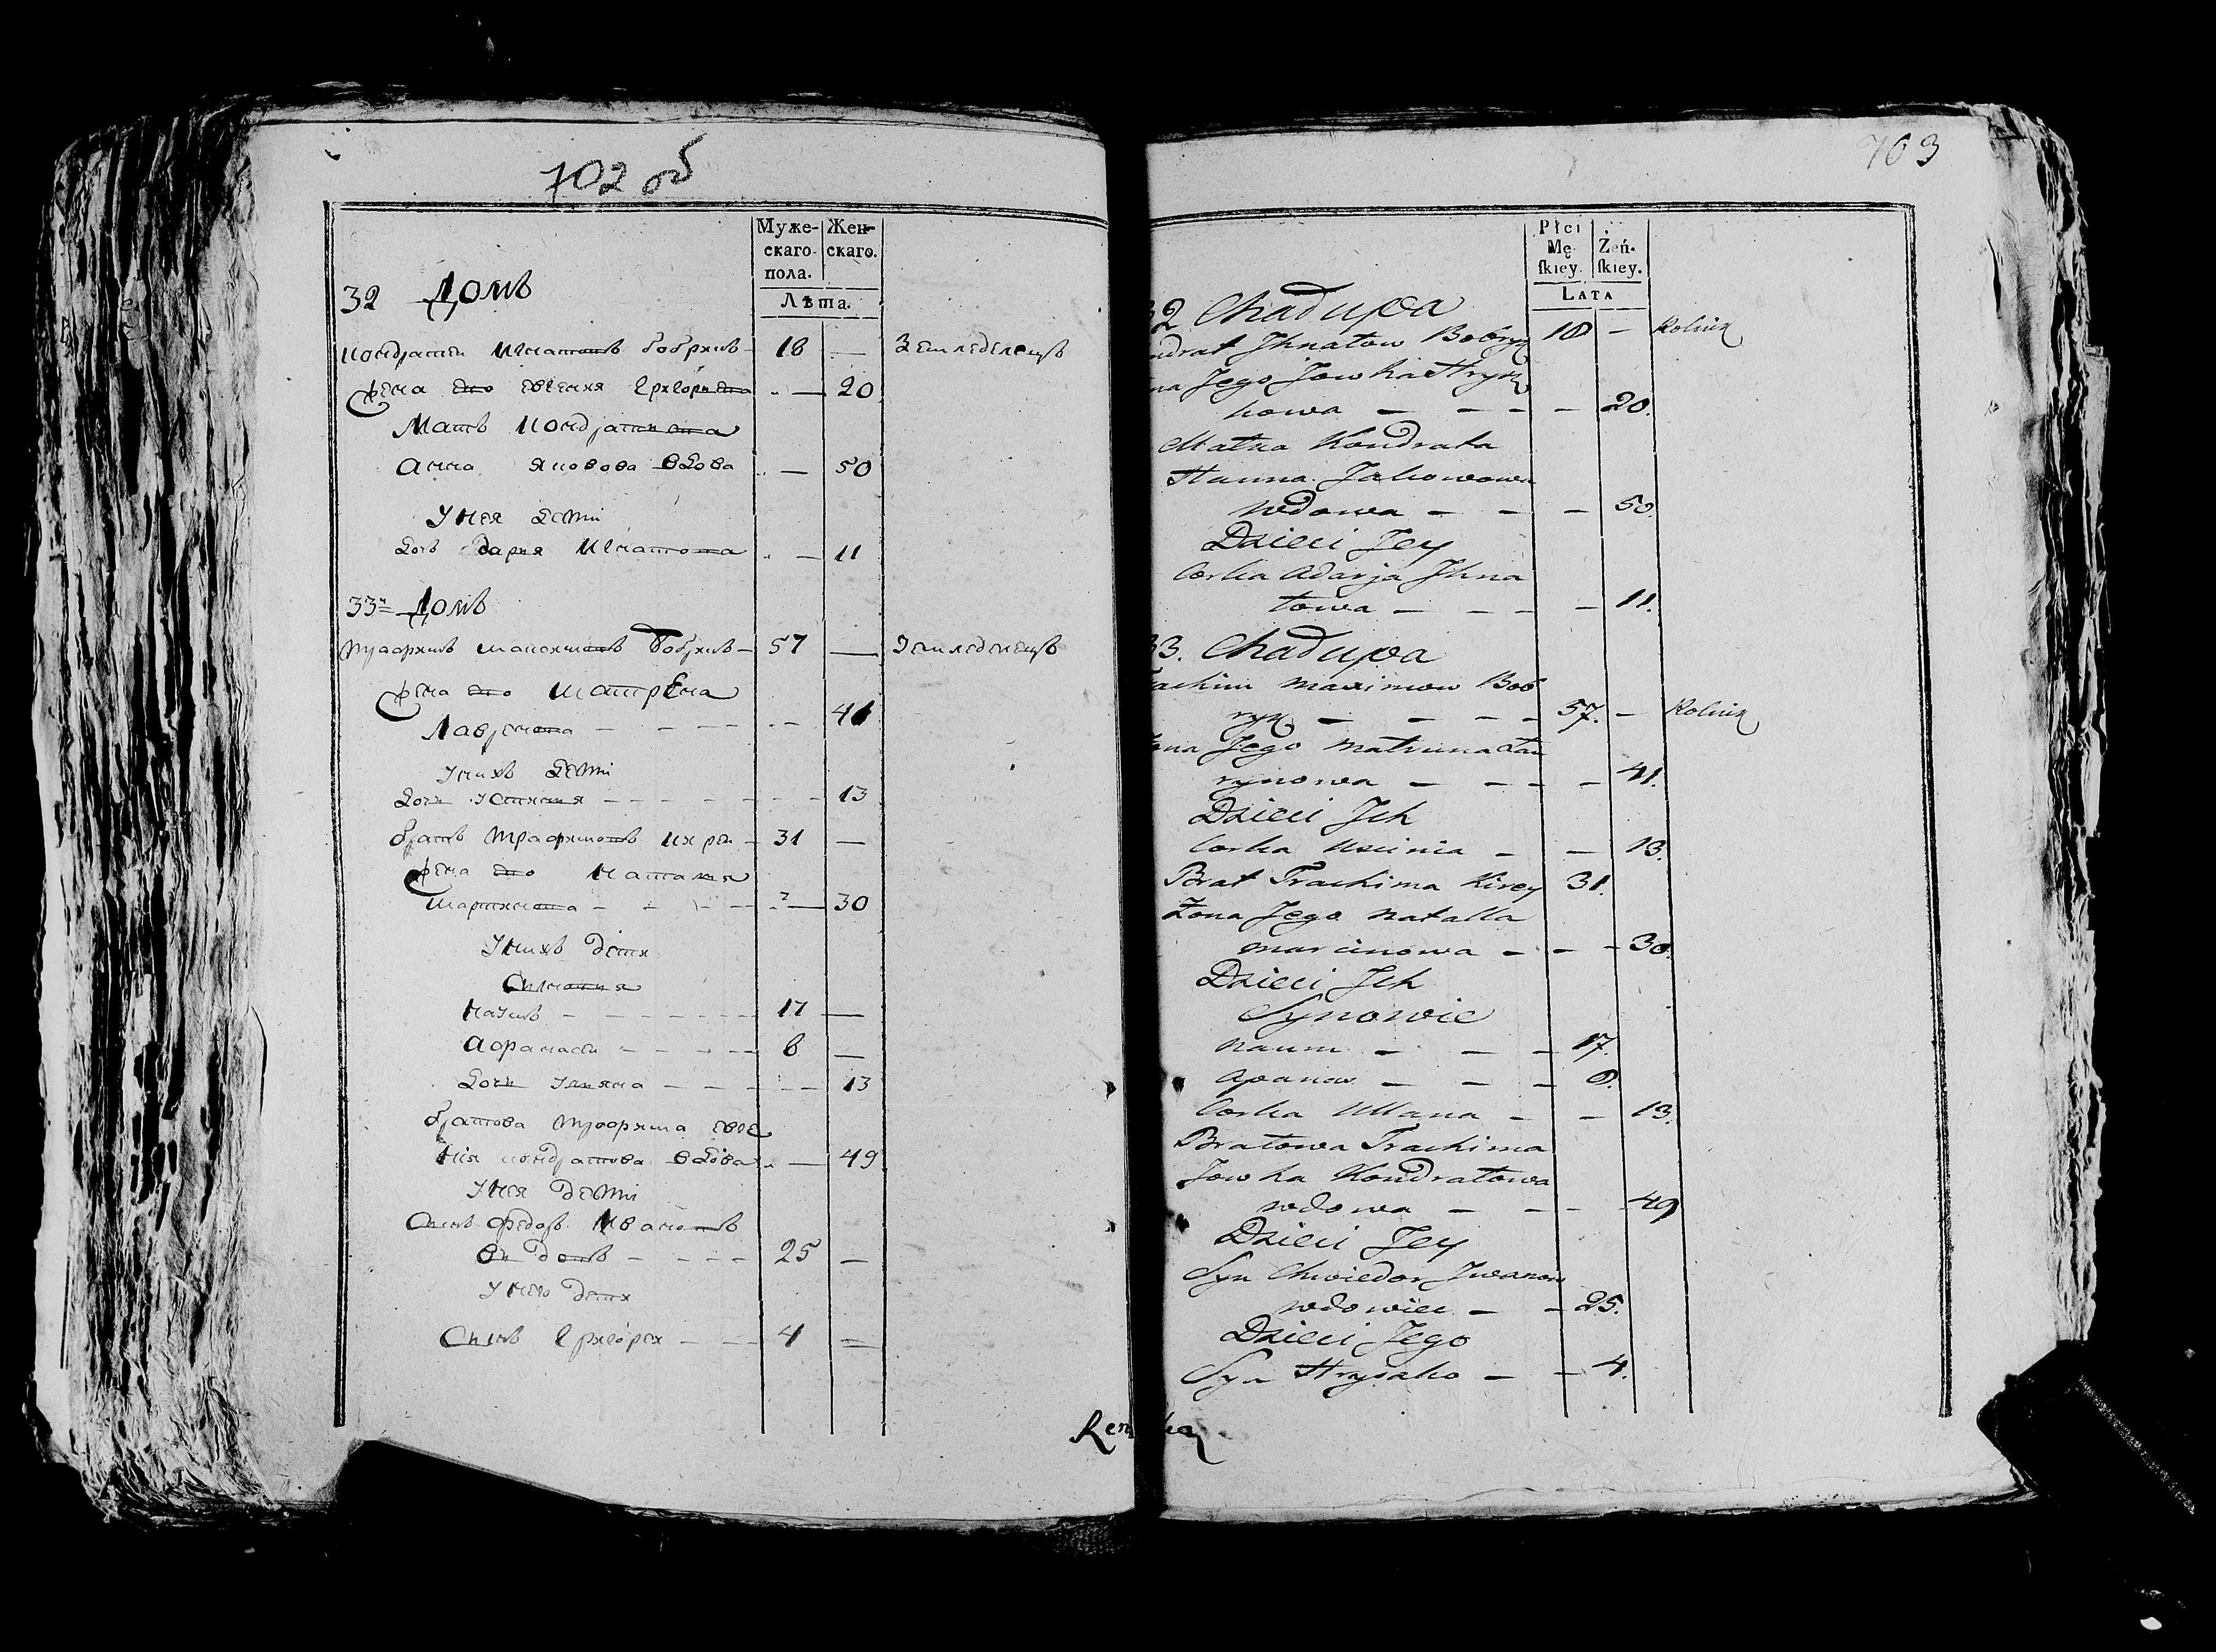 702 об
Муже-
скаго
пола.
Жен-
скаго.
Лѣта.
32 Домъ
Кондратеи Игнатовъ бобрикъ 18 — Земледелецъ
жена его евгения григорьева — 20
Мать Кондратиева
анна яковова вдова — 50
У нея дети
дочь дария Игнатова — 11
33 Домъ
трофимъ максимовъ бобрикъ 57 — Земледелецъ
жена его матрЕна
Лаврен — 41
У нихъ дети
дочь Устиния — 13
братъ трофимовъ кирей 31 —
жена его наталия
мартинова — 30
У нихъ дети
Сыновия
наумъ — 17 —
афанасеи — 8 —
дочь улияна — 13
братова трофима евге
ния кондратова вдова — 49
У нея дети
Сынъ федоръ Ивановъ
вдовъ — 25 —
У него дети
Сынъ григореи — 4 —
703
Płci
Mę-
skiey.
Żeń-
skiey.
LATA
32 Chadupa
ndrat Jhnatow Bobryk 18 — Rolnik
na Jego Jowka Hryh
kowa — 20.
Matka Kondrata
Hanna Jakowowa
wdowa — 50.
Dzieci Jey
Corka Adarja Jhna
towa — 11.
33. Chadupa
rachim Maximow Bob
ryk — 57. — Rolnik
ona Jego Matruna Ław
rynowa — 41.
Dzieci Jch
Corka Uscinia — 13.
Brat Trachima Kirey 31.
Żona Jego Natalla
marcinowa — 30.
Dzieci Jch
Synowie
Naum — 17.
Apanas — 8.
Corka Ullana — 13.
Bratowa Trachima
Jowka Kondratowa
wdowa — 49
Dzieci Jey
Syn Chwiedor Jwanow
wdowiec — 25.
Dzieci Jego
Syn Hrysko — 4.